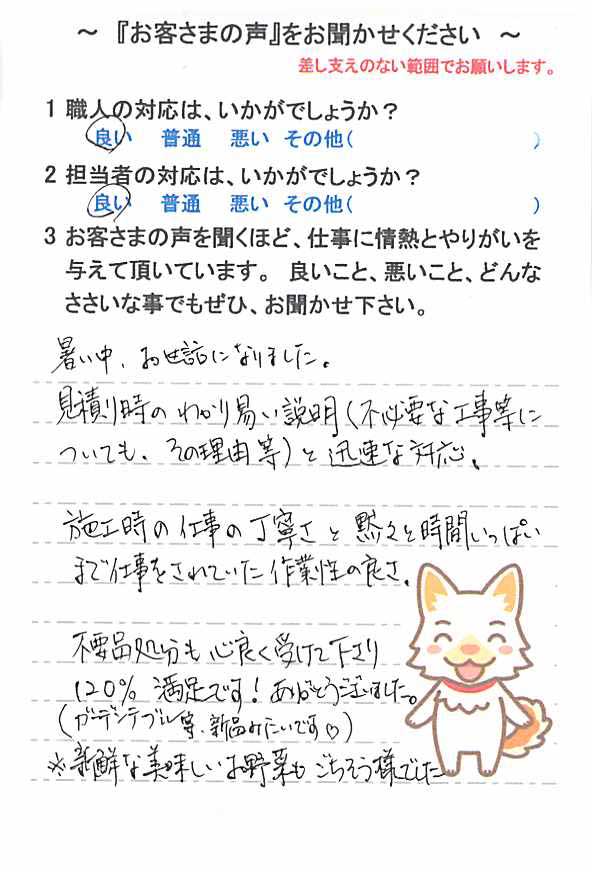 ～ 『お客さまの声』をお聞かせください ～
差し支えのない範囲でお願いします。
1 職人の対応は、いかがでしょうか？
良い 普通 悪い その他( )
2 担当者の対応は、いかがでしょうか？
良い 普通 悪い その他( )
3 お客さまの声を聞くほど、仕事に情熱とやりがいを
与えて頂いています。 良いこと、悪いこと、どんな
ささいな事でもぜひ、お聞かせ下さい。
暑い中、お世話になりました。
見積り時のわかり易い説明(不必要な工事等に
ついても、その理由等)と迅速な対応。
施工時の仕事の丁寧さと黙々と時間いっぱい
まで仕事をされていた作業性の良さ。
不要品処分も心良く受けて下さり
120% 満足です！ありがとうございました。
(ガーデンテーブル等、新品みたいです♡)
※新鮮な美味しいお野菜もごちそう様でした